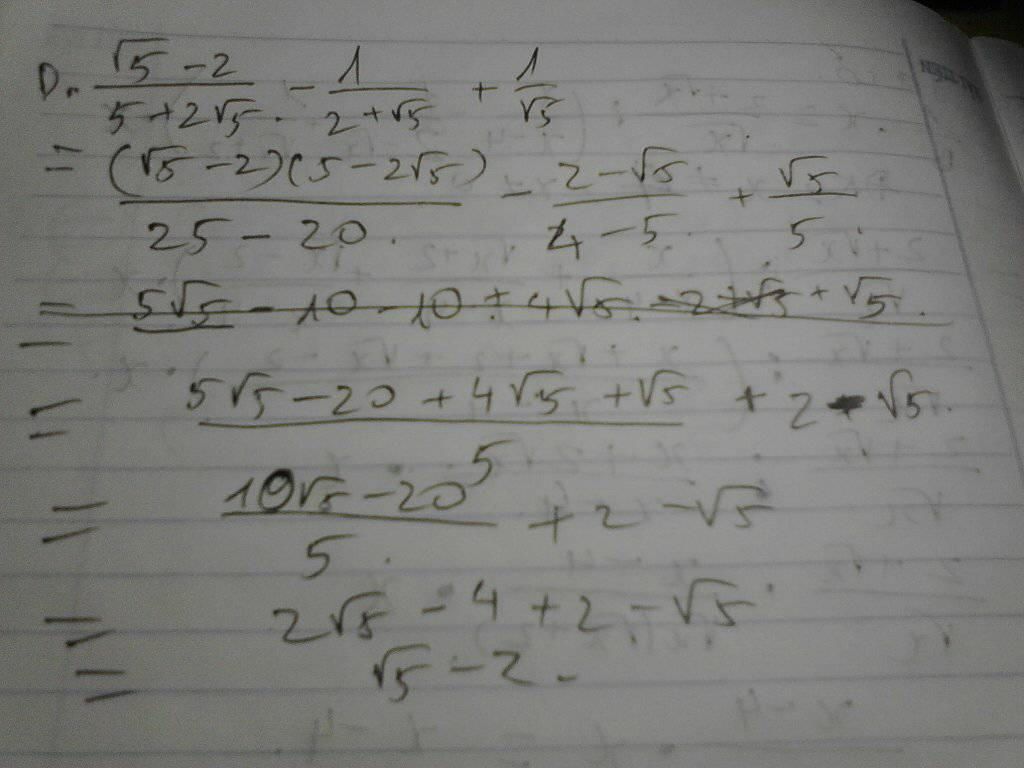 D. (√5 - 2)/(5 + 2√5) - 1/(2 + √5) + 1/√5
= (√5 - 2)(5 - 2√5)/(25 - 20) - (2 - √5)/(4 - 5) + √5/5
= 5√5 - 10 - 10 + 4√5 - 2 + √5 + √5
= (5√5 - 20 + 4√5 + √5)/5 + 2 - √5
= (10√5 - 20)/5 + 2 - √5
= 2√5 - 4 + 2 - √5
= √5 - 2.